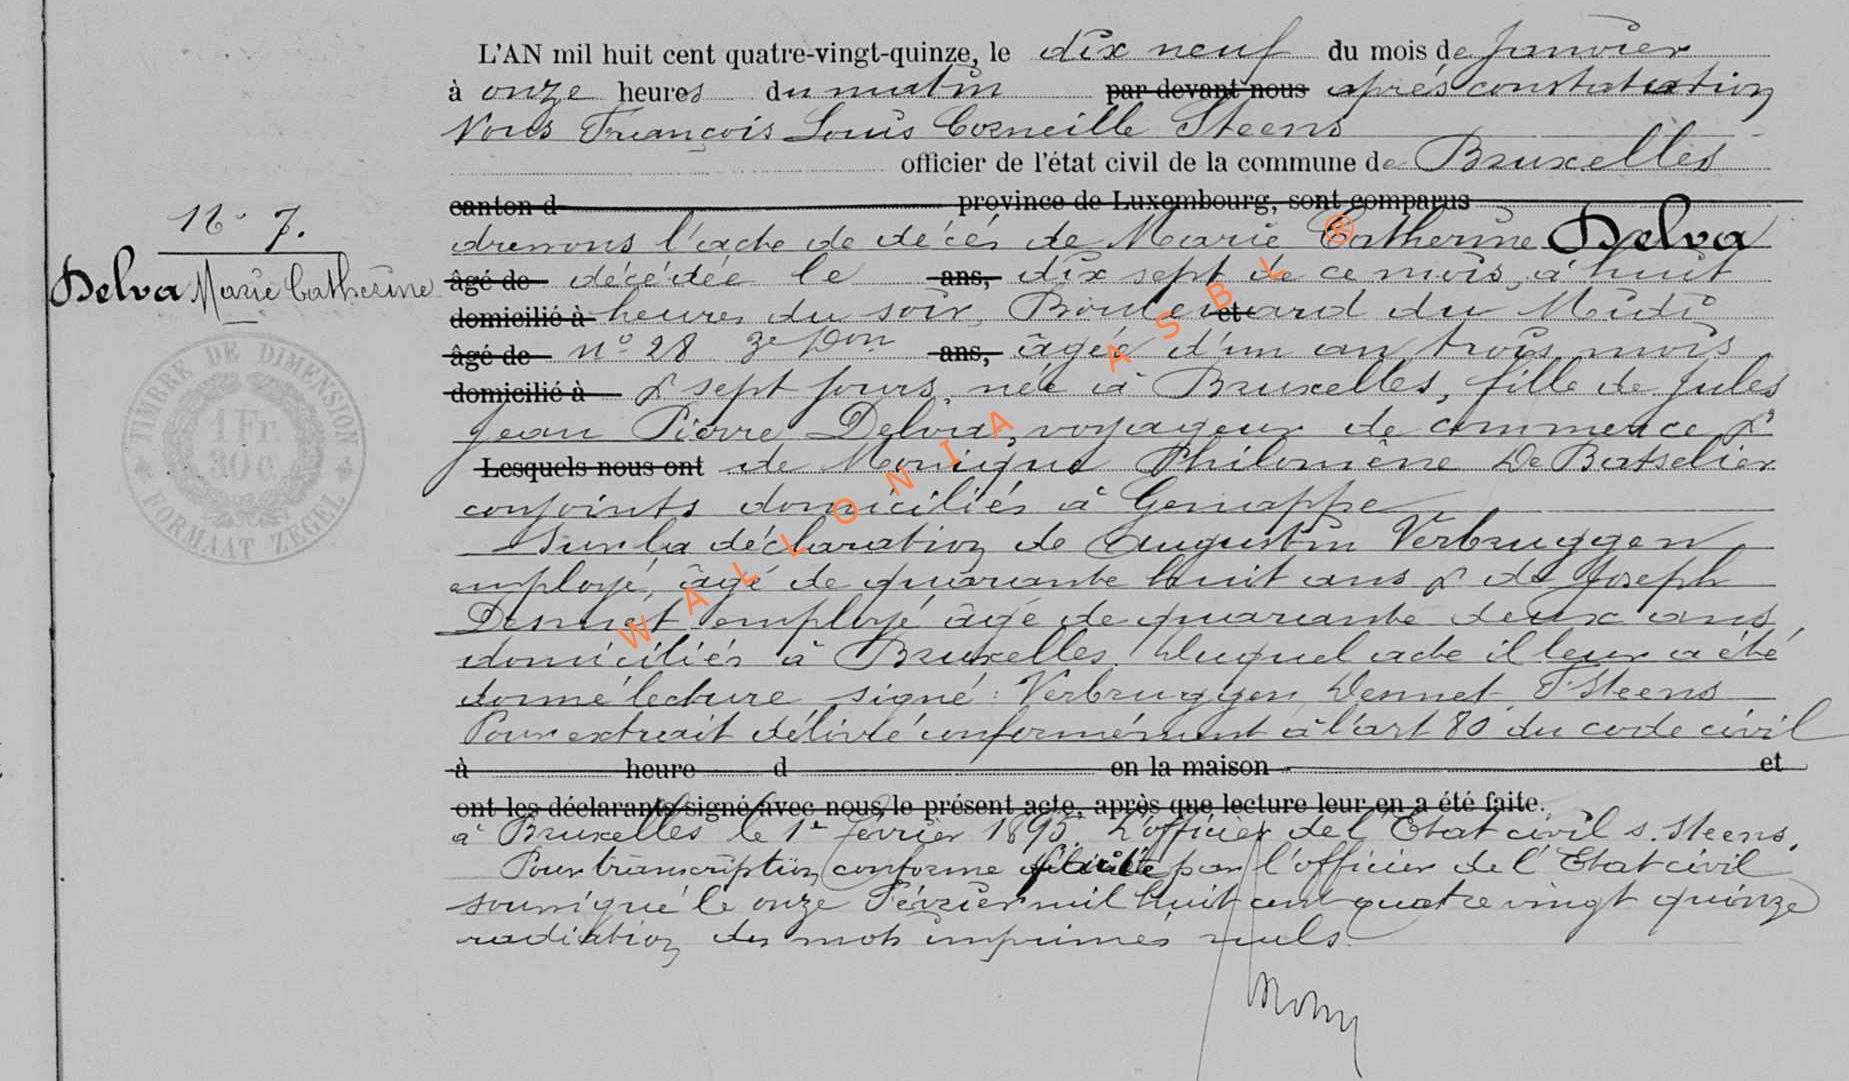 L'AN mil huit cent quatre-vingt-quinze, le dix neuf du mois de Janvier
à onze heures du matin par devant nous après constatation
Nous François Louis Corneille Steens
officier de l'état civil de la commune de Bruxelles
canton d province de Luxembourg, sont comparus
N° 7.
dressons l'acte de décés de Marie Catherine Delva
Delva Marie Catherine
âgé de décédée le ans, dix sept de ce mois, à huit
domicilié à heures du soir, Boulevard et du Midi
âgé de n° 28 3e Don ans, âgée d'un an, trois mois
domicilié à & sept jours, née à Bruxelles, fille de Jules
Jean Pierre Delva, voyageur de commerce &
Lesquels nous ont de Monique Philomène De Batselier
conjoints domiciliés à Genappe
Sur la déclaration de Augustin Verbruggen
employé, âgé de quarante huit ans & de Joseph
Desmet employé âgé de quarante deux ans
domiciliés à Bruxelles. Duquel acte il leur a été
donné lecture signé : Verbruggen Desmet F. Steens
Pour extrait délivré conformément à l'art 80 du code civil
à heure d en la maison et
ont les déclarants signé avec nous le présent acte, après que lecture leur en a été faite.
à Bruxelles le 1r février 1895. L'officier de l'Etat civil s. Steens.
Pour transcription conforme faite par l'officier de l'Etat civil
soussigné le onze Février mil huit cent quatre vingt quinze
radiation des mots imprimés nuls.
TIMBRE DE DIMENSION
1 Fr.
30 C.
FORMAAT ZEGEL
WALLONIA ASBL ®